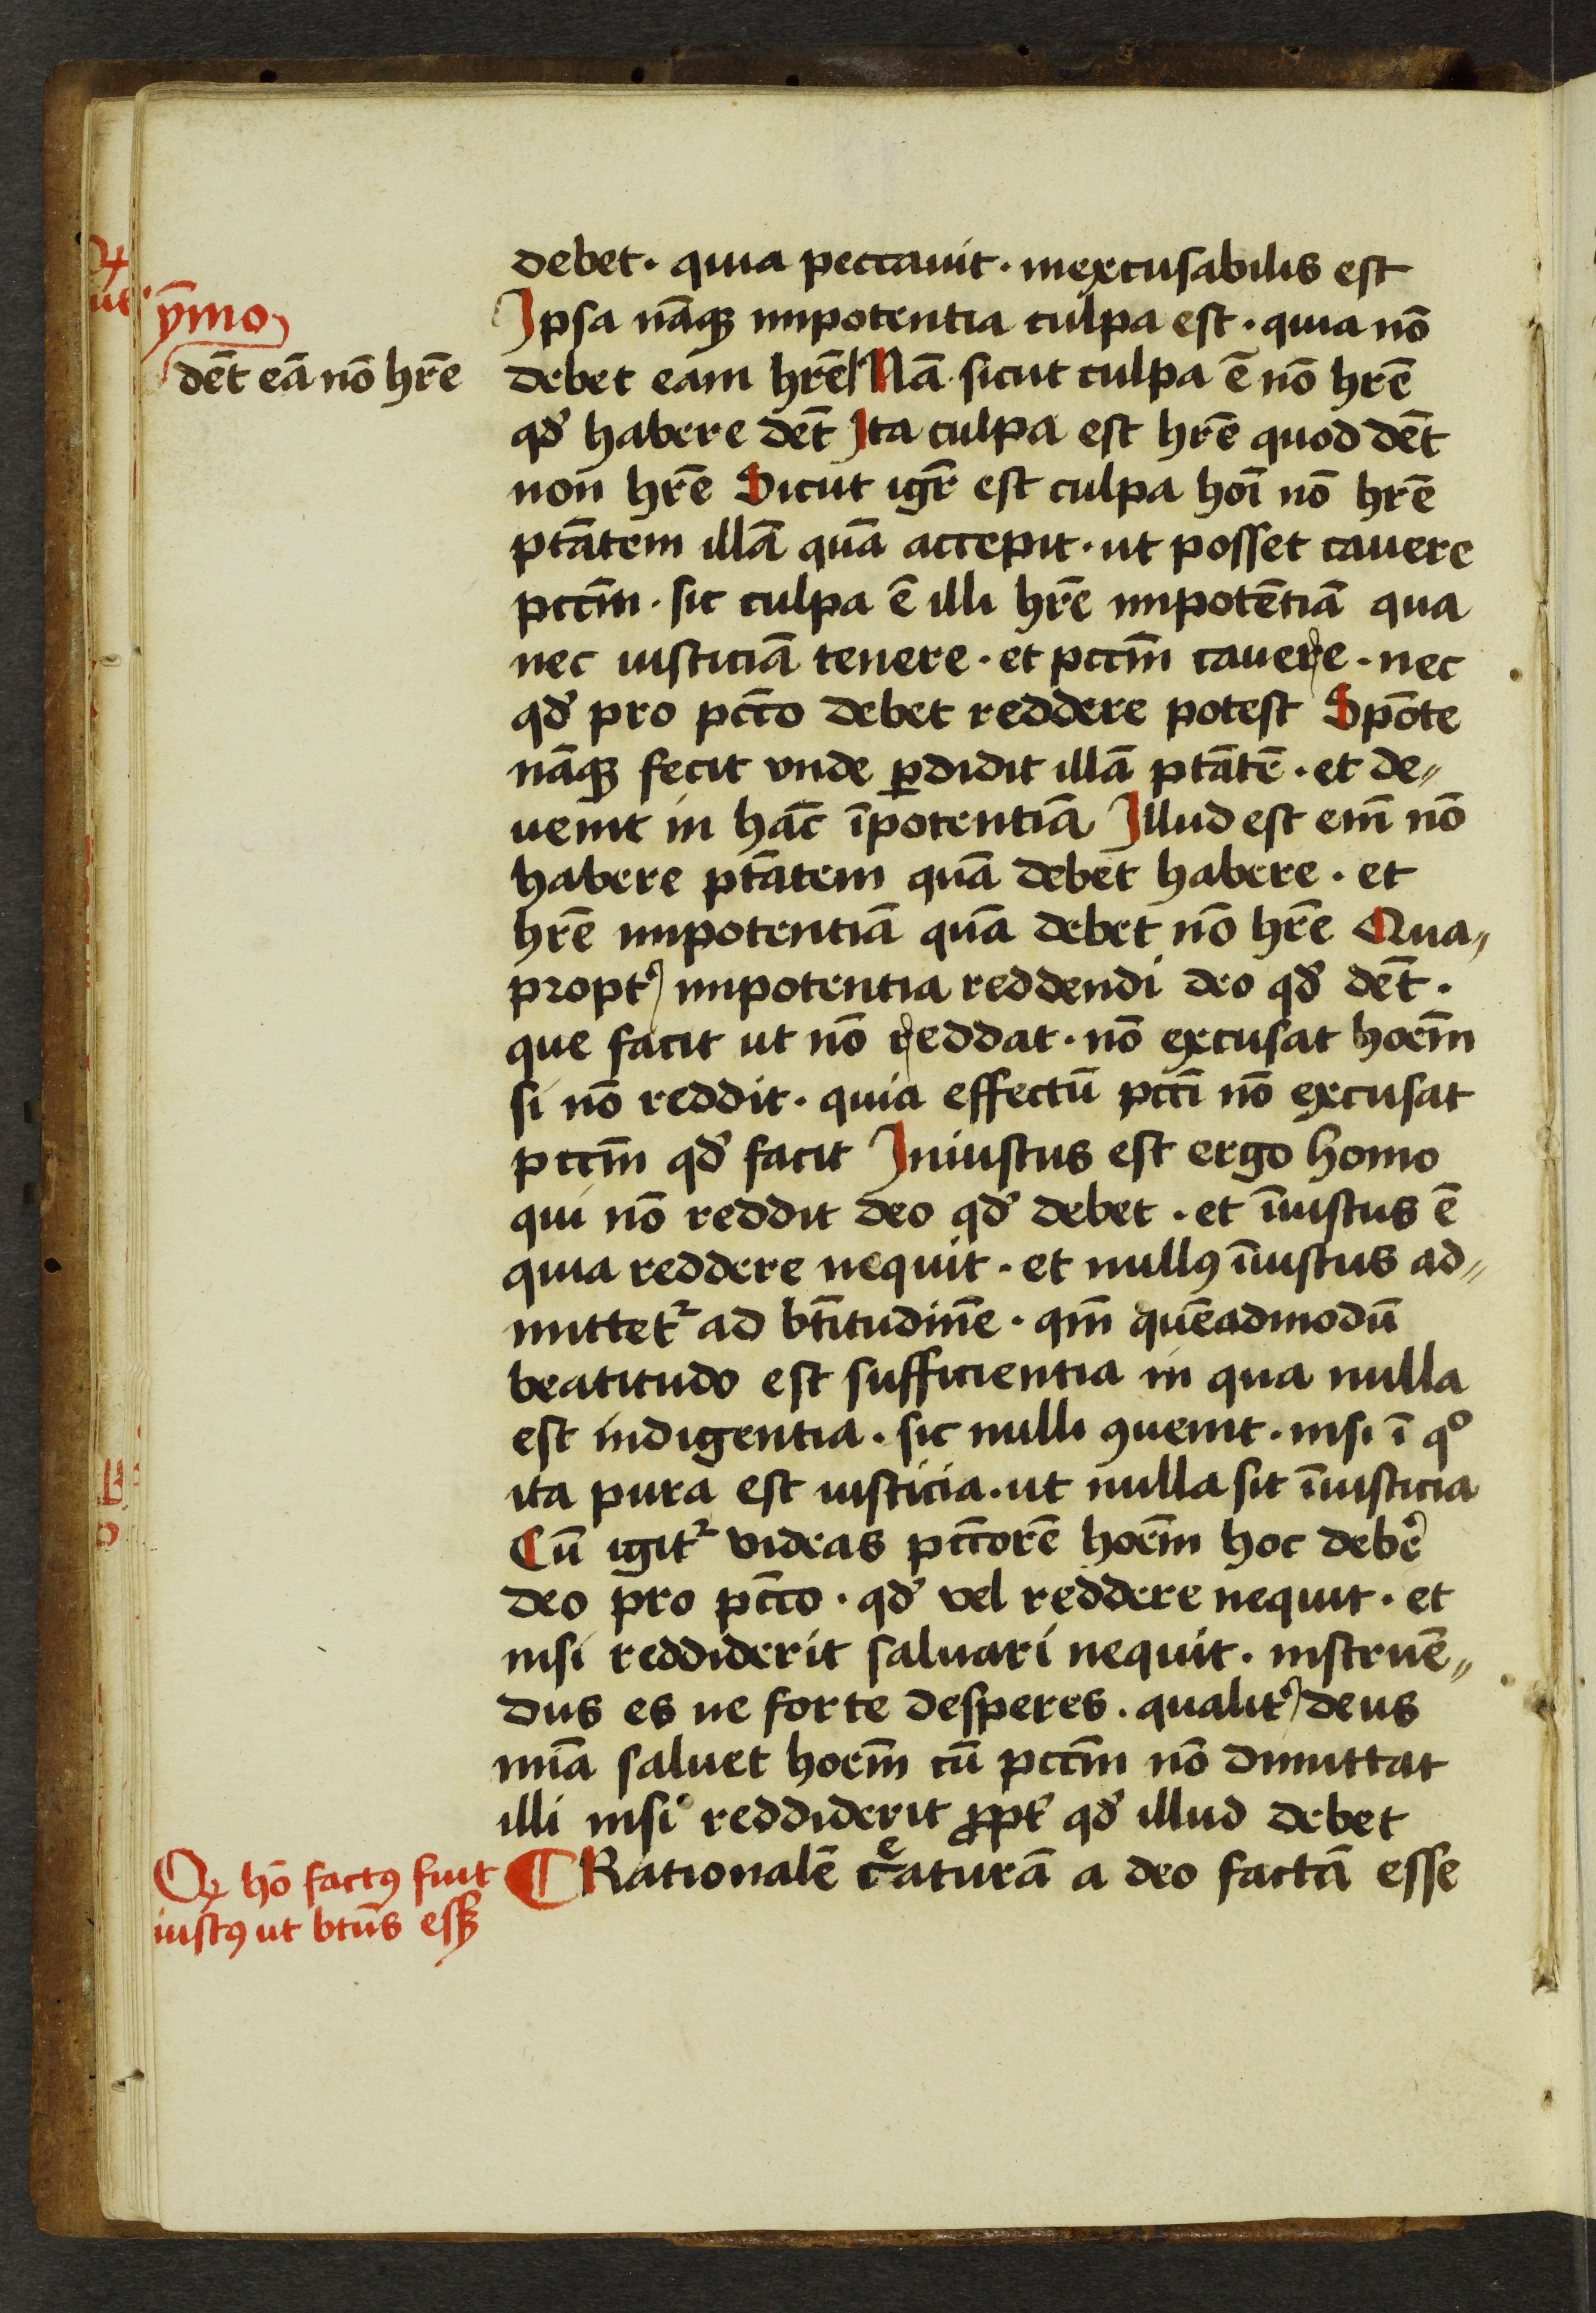 debet · quia peccauit · inexcusabilis est
Ipsa nāqꝫ impotentia culpa est · quia nō
ȳmo
debet eam hr̄e Nā sicut culpa ē nō hr̄e
dēt eā nō hr̄e
qđ habere dēt Ita culpa est hr̄e quod dēt
non hr̄e Sicut igr̄ est culpa hoī nō hr̄e
ptātem illā quā accepit · ut posset cauere
pccm̄ · sic culpa ē illi hr̄e impotētiā qua
nec iusticiā tenere · et pccm̄ cauere · nec
qđ pro pcc̄o debet reddere potest Spōte
nāqꝫ fecit vnde ꝑdidit illā ptātē · et de〃
uenit in hāc īpotentiā Illud est em̄ nō
habere ptātem quā debet habere · et
hr̄e impotentiā quā debet nō hr̄e Qua〃
propt̉ impotentia reddendi deo qđ dēt ·
que facit ut nō reddat · nō excusat hoēm
si nō reddit · quia effectū pccī nō excusat
pccm̄ qđ facit Iniustus est ergo homo
qui nō reddit deo qđ debet · et īiustus ē
quia reddere nequit · et nullꝰ īiustus ad〃
mittetᷣ ad bt̄itudinē · qm̄ quēadmodū
beatitudo est sufficientia in qua nulla
est indigentia · sic nulli ꝯuenit · nisi ī qͦ
ita pura est iusticia · ut nulla sit īiusticia
Cū igitᷣ videas pcc̄orē hoēm hoc deber̉
deo pro pcc̄o · qđ vel reddere nequit · et
nisi reddiderit saluari nequit · instruē〃
dus es ne forte desperes · qualit̉ deus
mīa saluet hoēm cū pccm̄ nō dimittat
illi nisi reddiderit ꝓpt̉ qđ illud debet
¶ Rationalē creaturā a deo factā esse
Qꝫ hō factꝰ fuit
iustꝰ ut btūs essꝫ